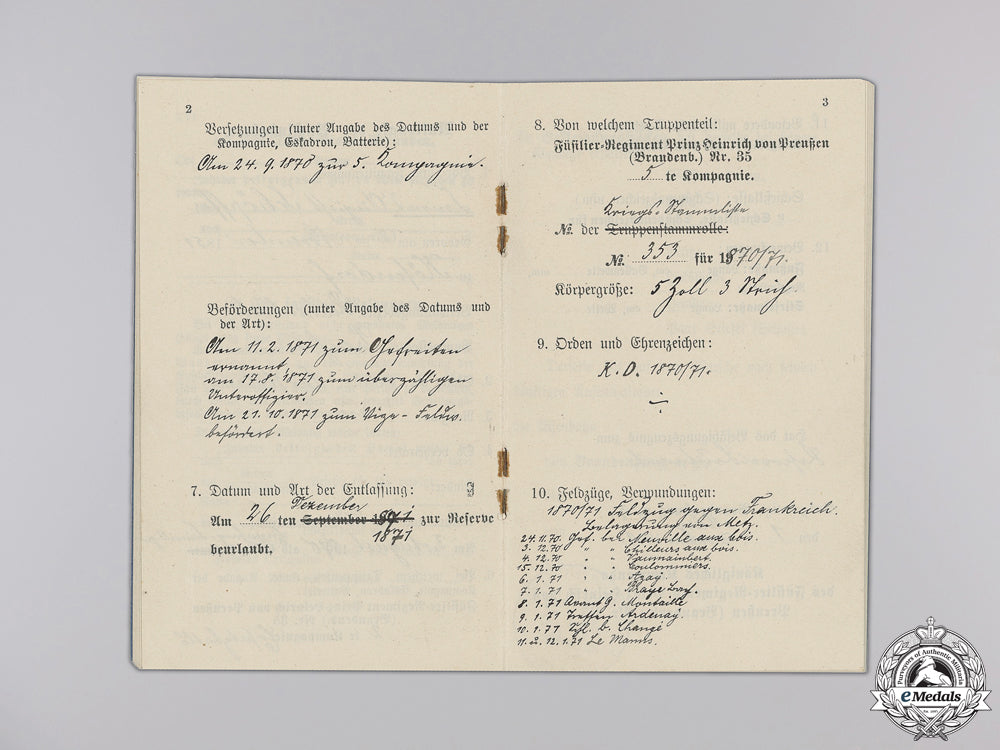 2
Versetzungen (unter Angabe des Datums und der
Kompagnie, Eskadron, Batterie):
Am 24. 9. 1870 zur 5. Kompagnie.
Beförderungen (unter Angabe des Datums und
der Art):
Am 11. 2. 1871 zum Gefreiten
ernannt,
am 17. 8. 1871 zum überzähligen
Unteroffizier.
Am 21. 10. 1871 zum Vize-Feldw.
befördert.
7. Datum und Art der Entlassung:
Dezember
Am 26 ten September zur Reserve
1871
beurlaubt.
3
8. Von welchem Truppenteil:
Füsilier-Regiment Prinz Heinrich von Preußen
(Brandenb.) Nr. 35
5 te Kompagnie.
Kriegs-Stammliste
No. der Truppenstammrolle:
No. 353 für 1870/71.
Körpergröße: 5 Zoll 3 Strich.
9. Orden und Ehrenzeichen:
K. D. 1870/71.
10. Feldzüge, Verwundungen:
1870/71 Feldzug gegen Frankreich.
Belagerung von Metz.
24. 11. 70 Gef. bei Neuville aux bois.
3. 12. 70 " " Chilleurs aux bois.
4. 12. 70 " " Vaumainbert.
15. 12. 70 " " Coulommiers.
6. 1. 71 " " Azay.
7. 1. 71 " "
8. 1. 71 Avant g. Montaillé
9. 1. 71 Treffen Ardenay.
10. 1. 71 b. Changé
11. u. 12. 1. 71 Le Manns.
Purveyors of Authentic Militaria
eMedals